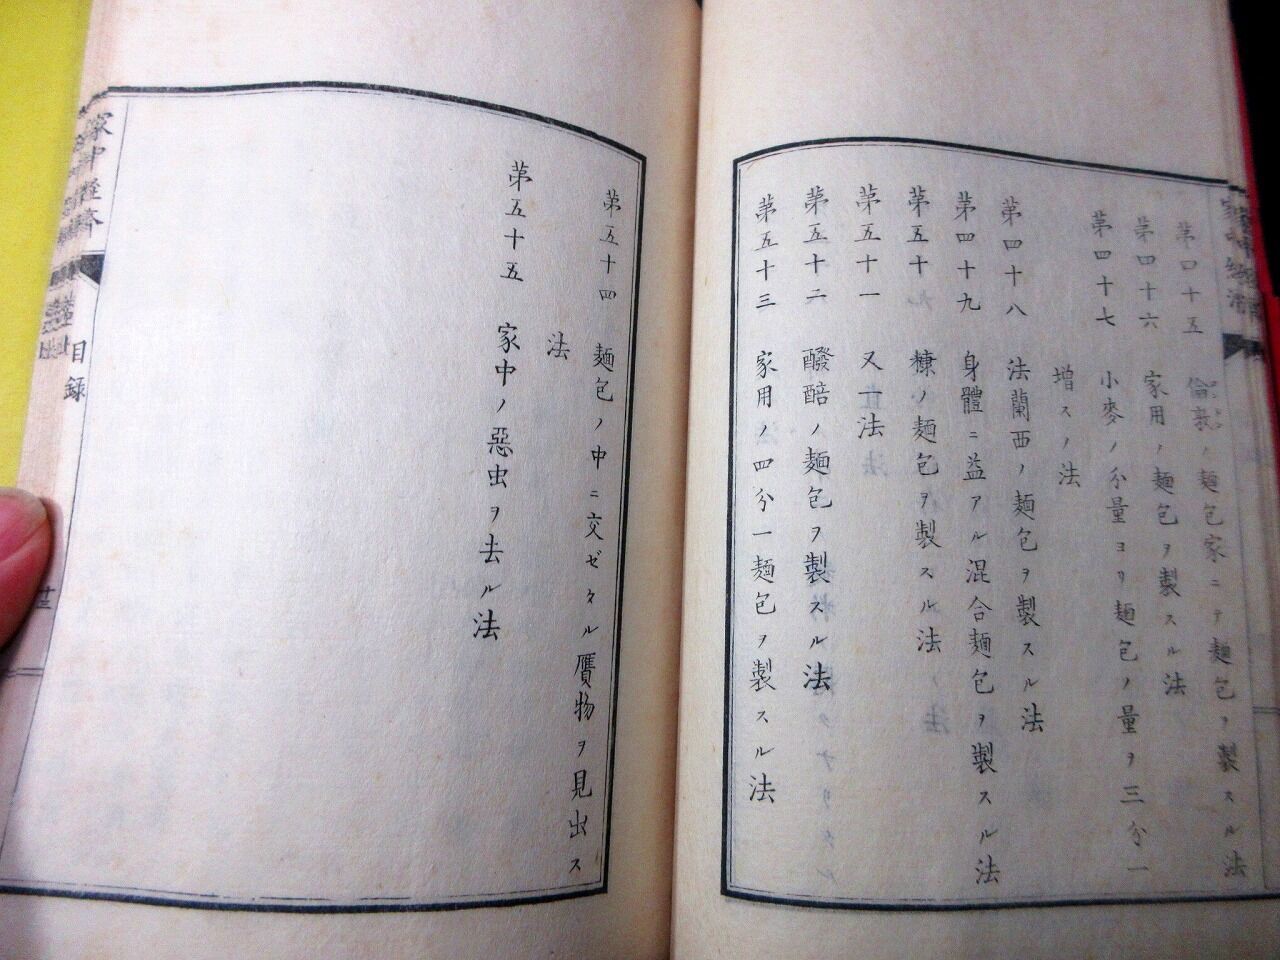 第四十五 倫敦ノ麺包家ニテ麺包ヲ製スル法
第四十六 家用ノ麺包ヲ製スル法
第四十七 小麥ノ分量ヨリ麺包ノ量ヲ三分一
増スノ法
第四十八 法蘭西ノ麺包ヲ製スル法
第四十九 身體ニ益アル混合麺包ヲ製スル法
第五十 糠ノ麺包ヲ製スル法
第五十一 又一法
第五十二 醱醅ノ麺包ヲ製スル法
第五十三 家用ノ四分一麺包ヲ製スル法
第五十四 麺包ノ中ニ交ゼタル贋物ヲ見出ス
法
第五十五 家中ノ惡虫ヲ去ル法
家中經濟
目録
十三